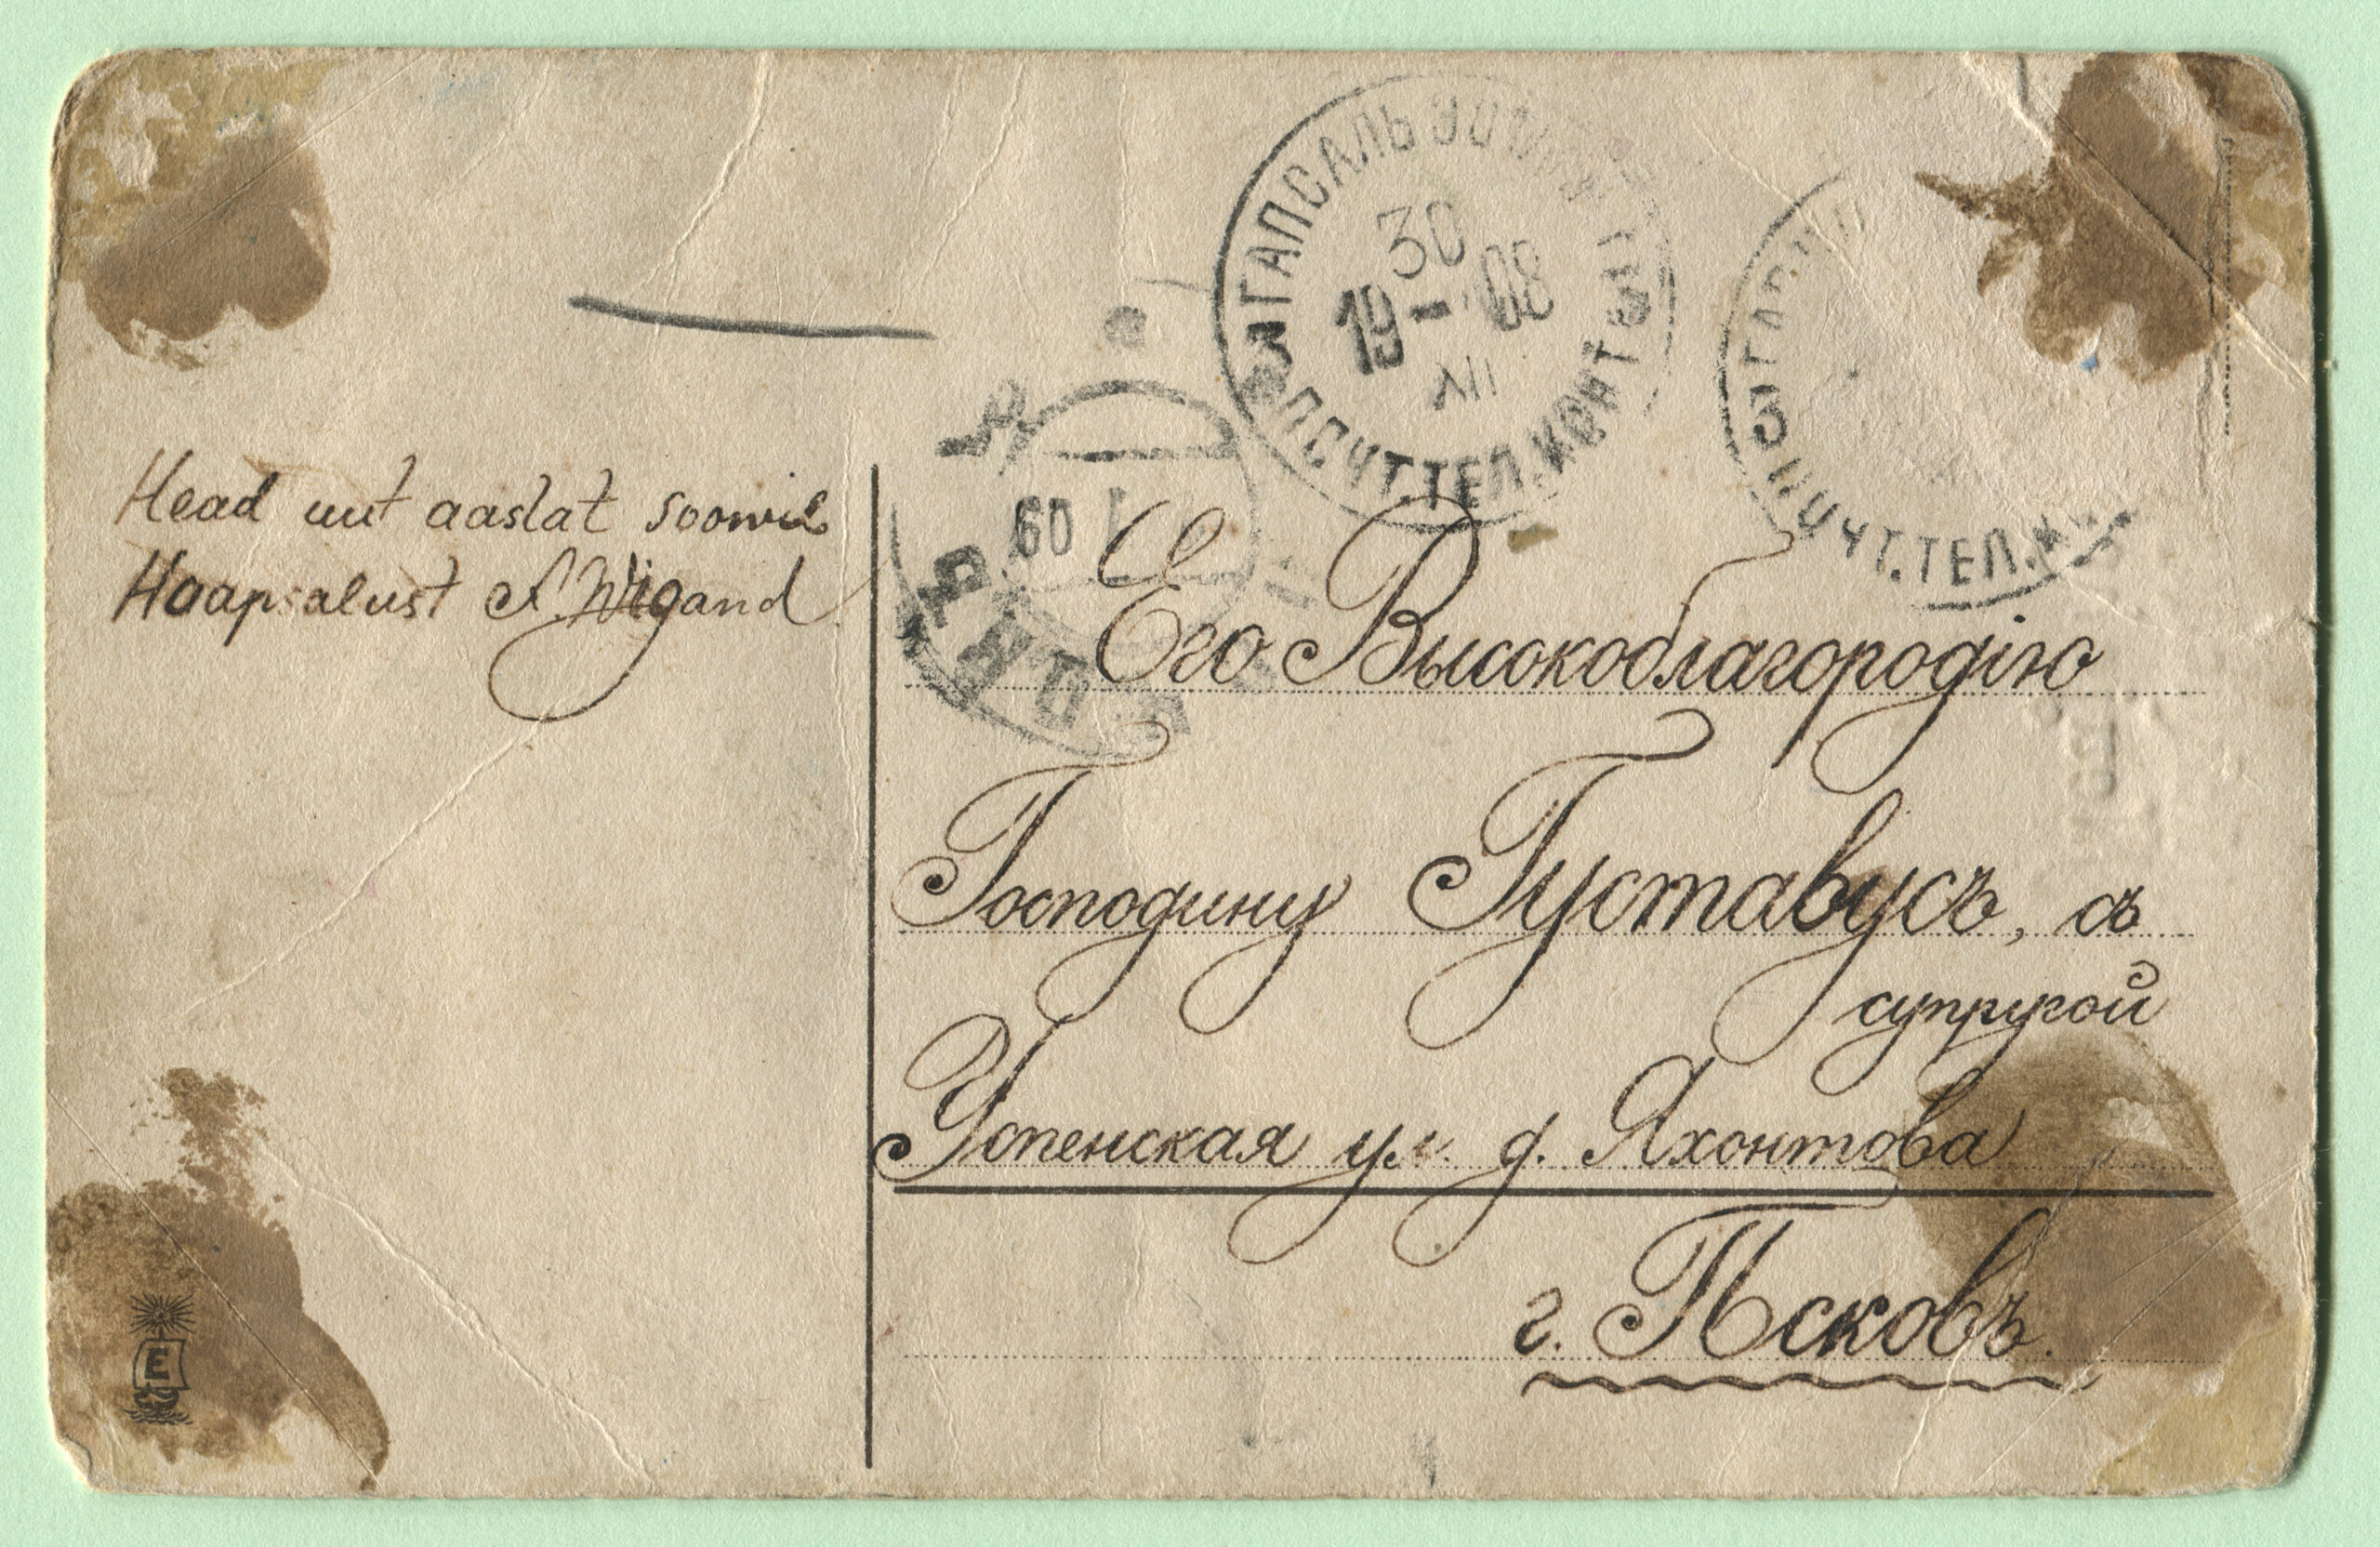 ГАПСАЛЬ ЭСТЛ
30
19-08
XII
3 ПОЧТ.ТЕЛ.КОНТ. 3
3 ПОЧТ.ТЕЛ.К
1 09
Head uut aastat soowib
Haapsalust A. Wigand
Его Высокоблагородію
Господину Густавусъ, съ
супругой
Успенская ул. д. Яхонтова
г. Псковъ.
E